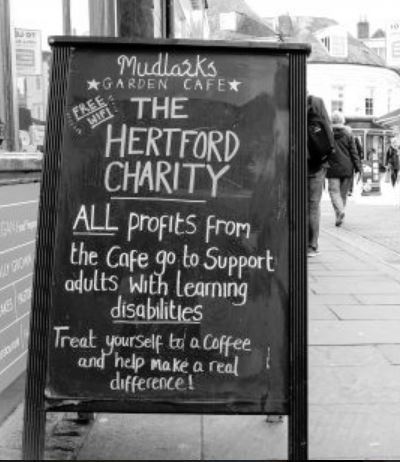 Mudlarks
★GARDEN CAFE★
FREE
WIFI
THE
HERTFORD
CHARITY
ALL profits from
the Cafe go to Support
adults with learning
disabilities
Treat yourself to a Coffee
and help make a real
difference!